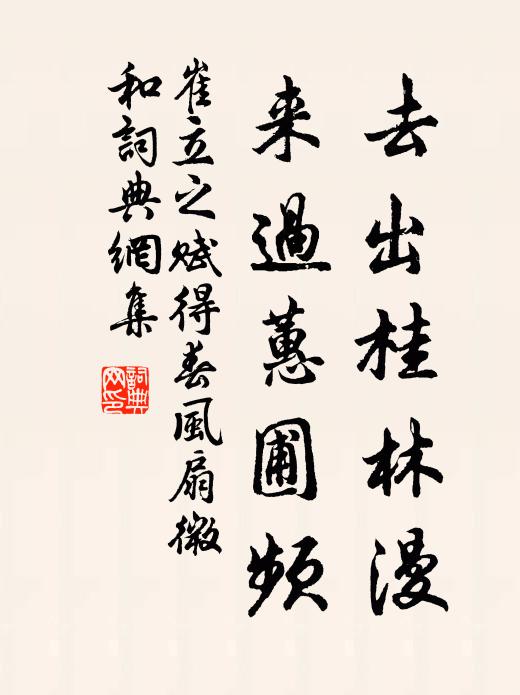 去出桂林漫
来過蕙圃頻
崔立之賦得春風扇微
和詞典網集
詞典網印